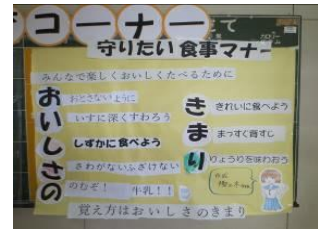 コーナー
守りたい食事マナー
みんなで楽しくおいしくたべるために
おいしさの
おとさないように
いすに深くすわろう
しずかに食べよう
さわがないふざけない
のむぞ! 牛乳!!
きまり
きれいに食べよう
まっすぐ背すじ
りょうりを味わおう
覚え方はおいしさのきまり